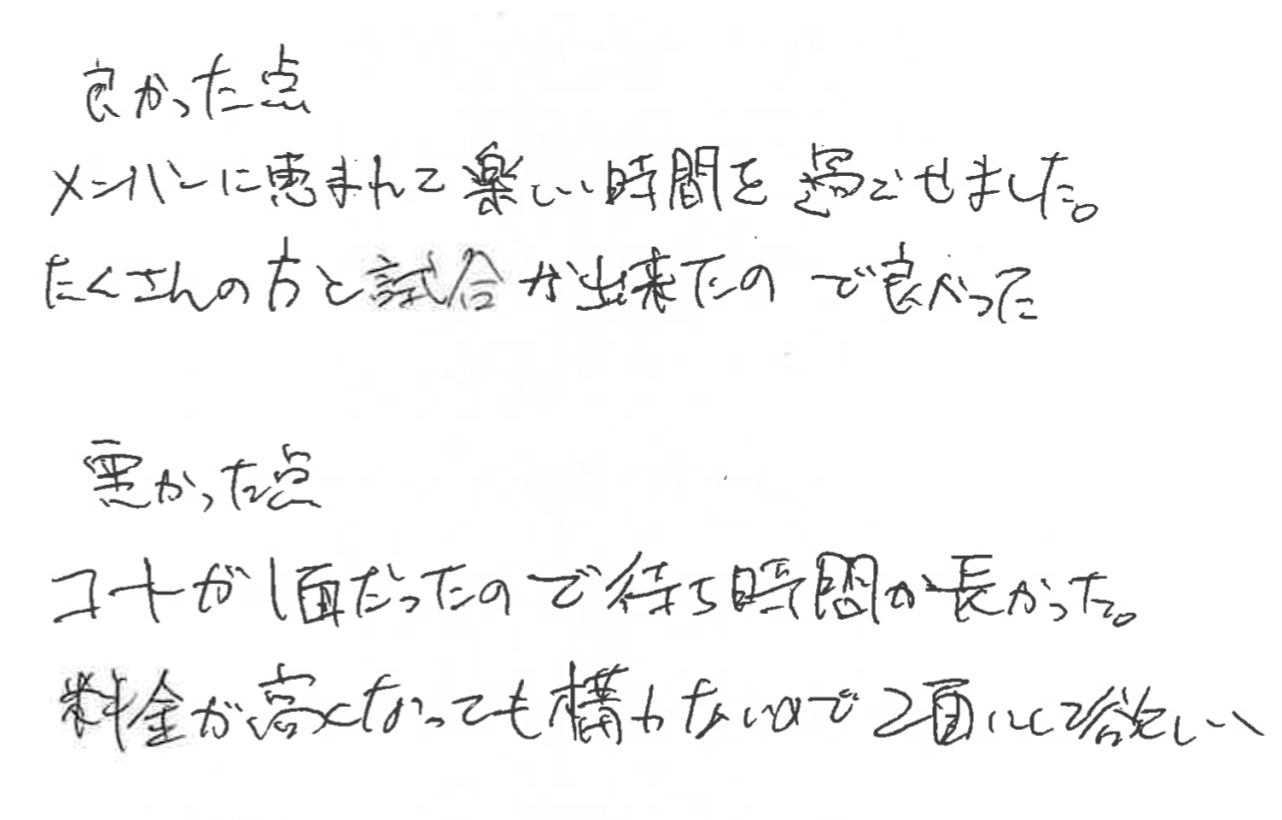 良かった点
メンバーに恵まれて楽しい時間を過ごせました。
たくさんの方と試合が出来たので良かった
悪かった点
コートが1面だったので待ち時間が長かった。
料金が高くなっても構わないので2面にして欲しい